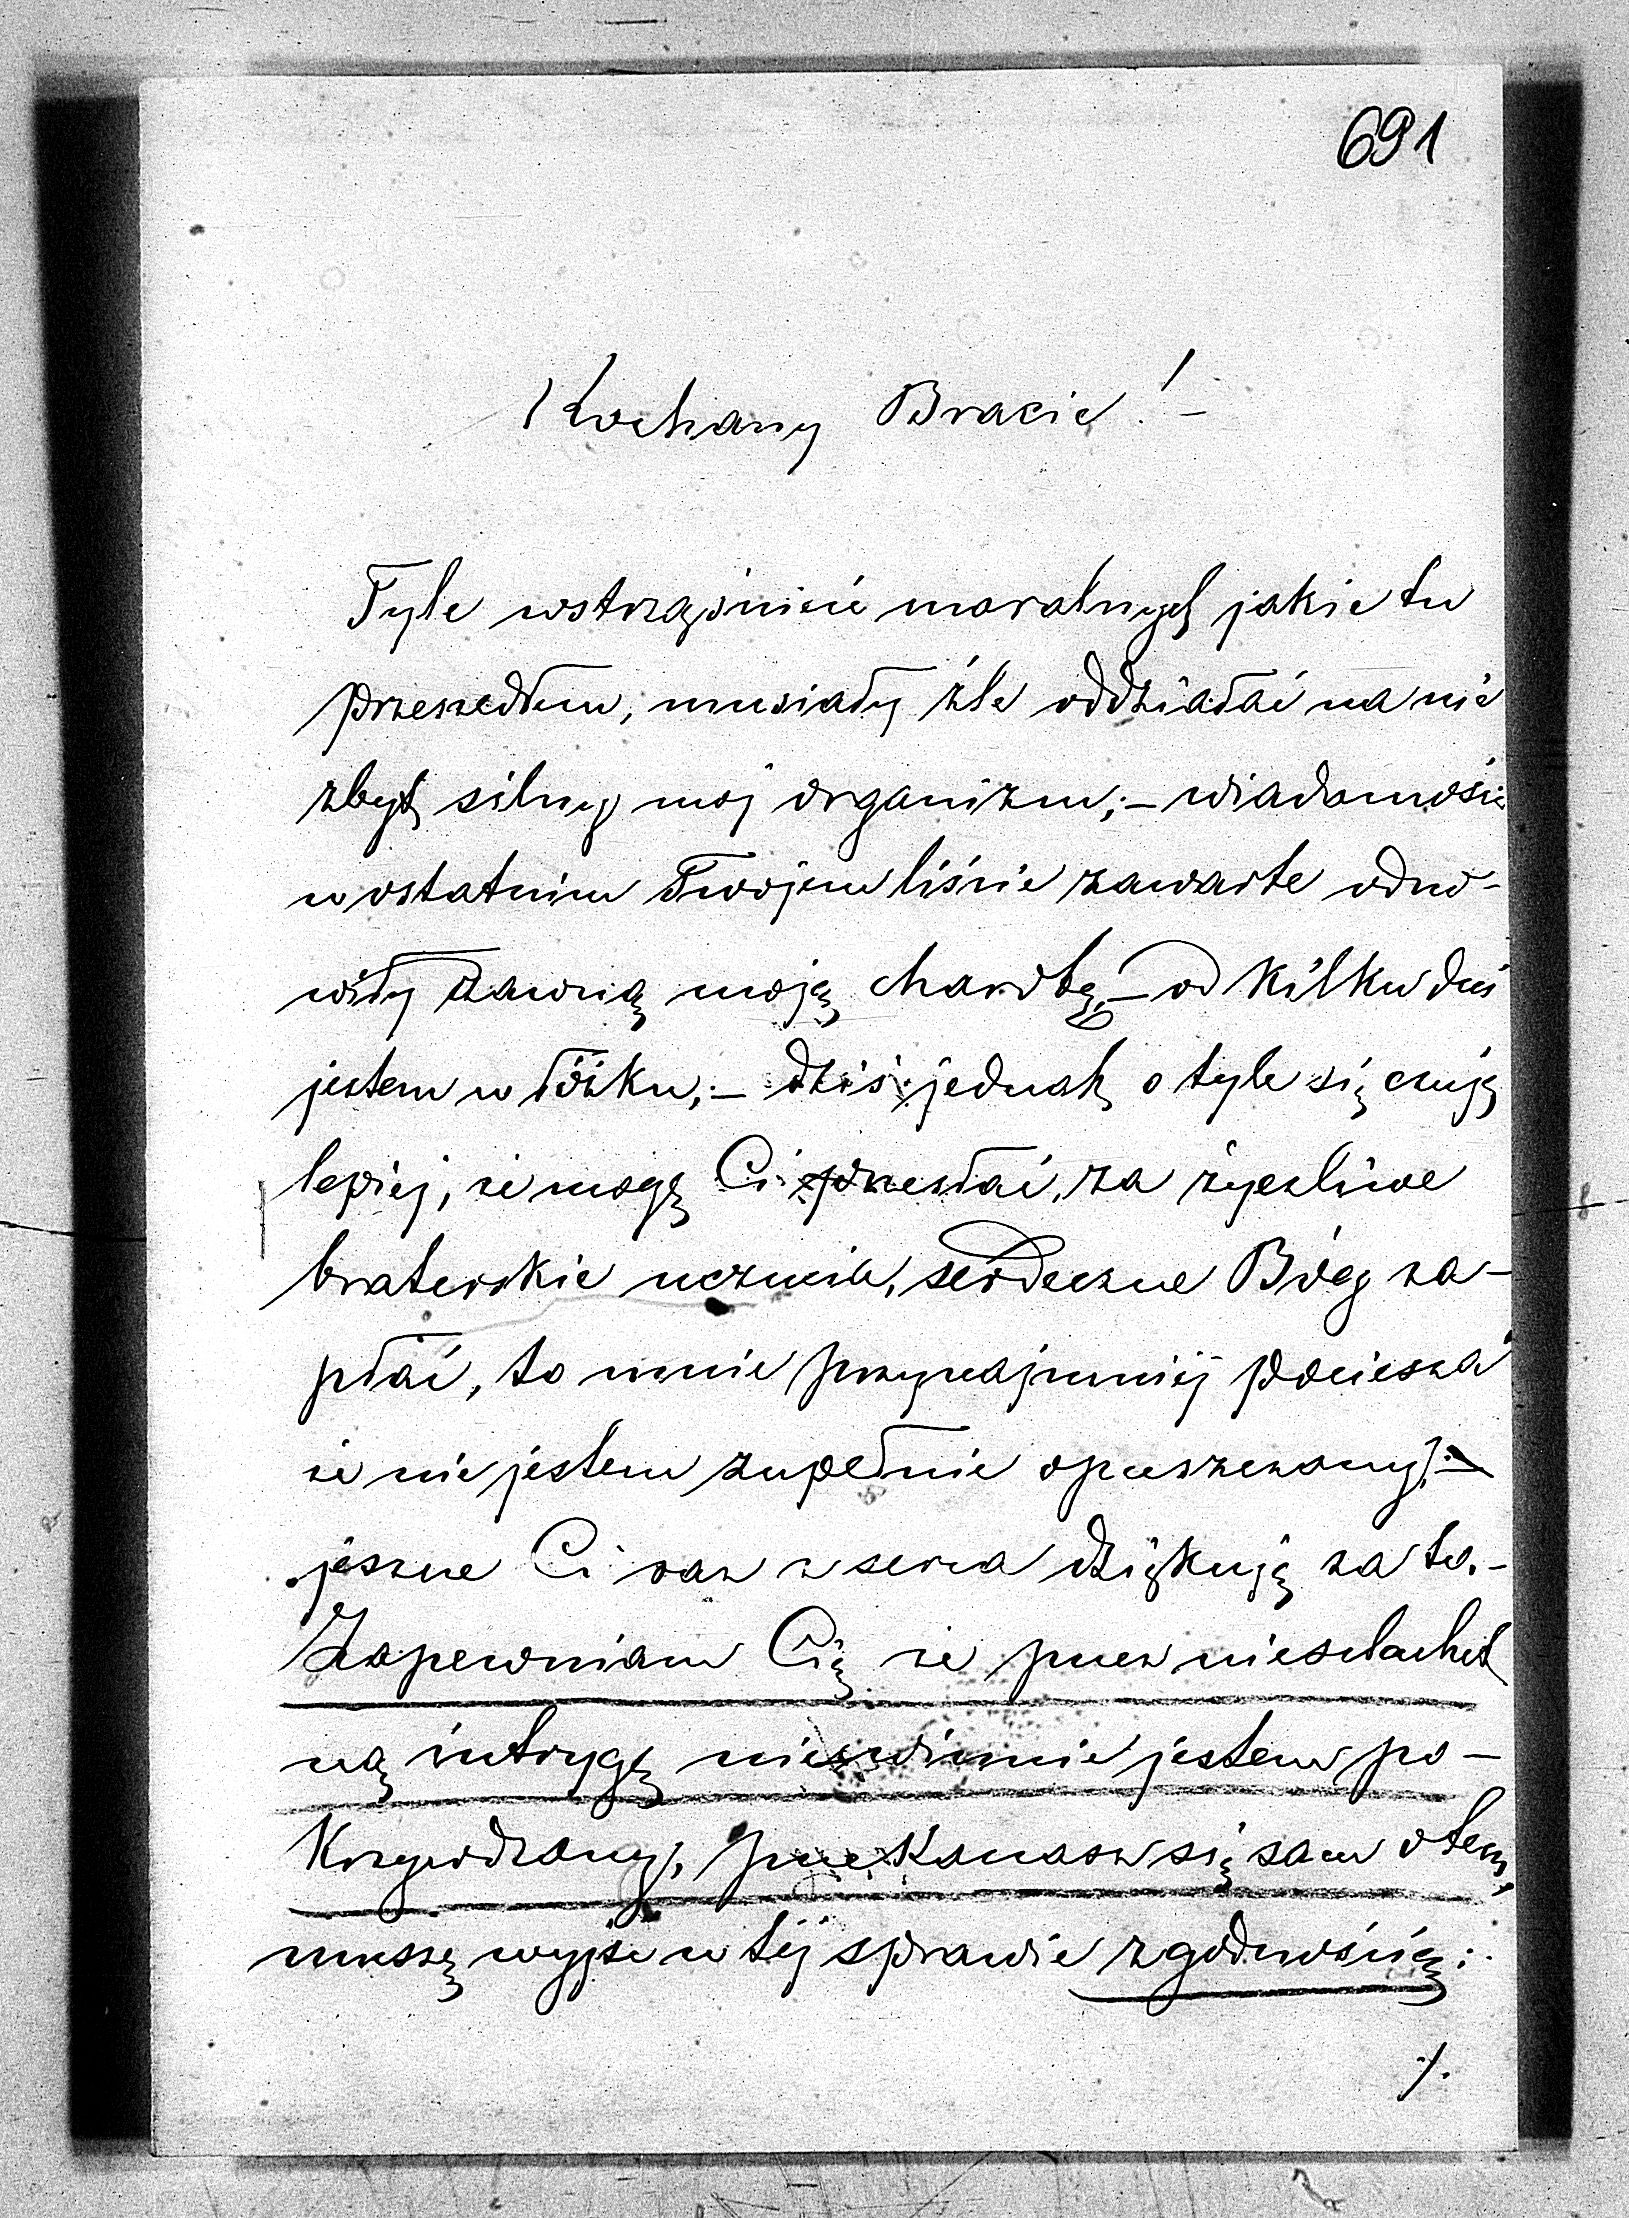 691
Kochany Bracie! –
Tyle wstrząśnień moralnych jakie tu
przeszedłem, musiały źle oddziałać na nie
zbyt silny moj organizm; – wiadomości
w ostatnim Twojem liście zawarte odno-
wiły dawną moją chorobę, – od kilku dni
jestem w łóżku; – dziś jednak o tyle się czuję
lepiej, że mogę Ci przesłać, za życzliwe
braterskie uczucia, serdeczne Bóg za-
płać, to mnie przynajmniej pociesza
że nie jestem zupełnie opuszczony; –
jeszcze Ci raz z serca dziękuję za to. –
Zapewniam Cię że przez nieszlachet
ną intrygę niewinnie jestem po-
krzywdzony, przekonasz się sam o tem,
muszę wyjść w téj sprawie z godnością;
./.